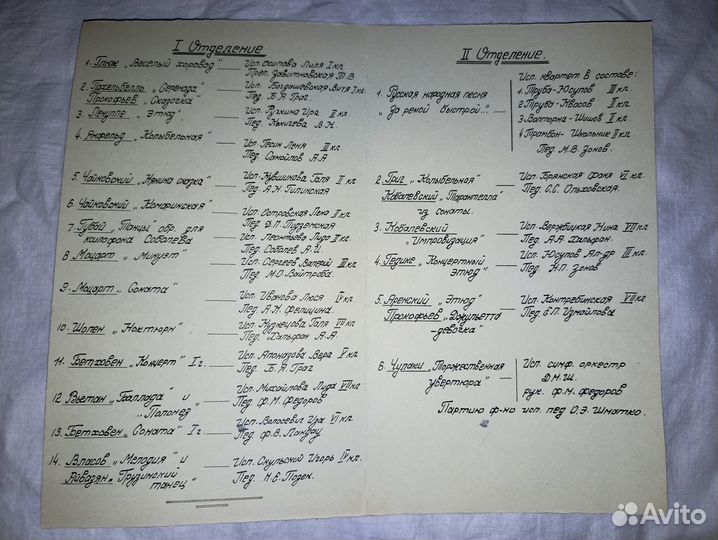 I Отделение
1. Глюк „Веселый хоровод" — Исп. Осипова Лиля I кл.
Преп. Завитновская Т.В
2. Пахельбель „Серенада"
Прокофьев „Сказочка — Исп. Богдашевская Витя I кл.
Пед. Б.Я Граг
3. Лекуппе „Этюд" — Исп. Ручкина Ира II кл
Пед. В.Н.
4. „Колыбельная" — Исп. Гесин Леня III кл
Пед. Самойлов А.А
5. Чайковский „Нянина сказка" — Исп. Кувшинова Галя II кл
Пед. А.Н. Гилинская
6. Чайковский „Камаринская" — Исп. Островская Лена II кл.
Пед. Д.П.
7. Губой „Танцы обр. для
ксилофона Соболева — Исп. Леонтьева Лида II кл.
Пед. Соболев А.И
8. Моцарт „Менуэт" — Исп. Сергеев Валерий III кл
Пед. М.О. Вайтраба
9. Моцарт „Соната" — Исп. Иванова Люся V кл
Пед. А.Н. Фелицина.
10. Шопен „Ноктюрн" — Исп. Кузнецова Галя VII кл
Пед. Дальфон А.А.
11. Бетховен „Концерт" I ч. — Исп. Апоназова Вера V кл.
Пед. Б.Я Граг
12. Вьетан „Баллада" и
„Полонез — Исп. Михайлова Лида VII кл.
Пед. Ф.М. Федоров
13. Бетховен „Соната" I ч. — Исп. Ира VI кл.
Пед. Ф.В. Ландау
14. Власов „Мелодия" и
Айвазян „Грузинский
танец" — Исп. Скульский Игорь IV кл.
Пед. Н.Е. Позен.
II Отделение.
1. Русская народная песня
„За рекой быстрой..!" — Исп. квартет в составе:
1 Труба - Юсупов III кл
2 Труба - Квасов II кл
3 Валторна - Шишов I кл.
4 Тромбон - Школьник II кл
Пед. М.В. Зонов.
2. Григ „Колыбельная"
Кабалевский „Тарантелла"
из сонаты. — Исп. Брянская Фаня VI кл.
Пед. С.С. Ольховская.
3. Кобалевский
„Импровизация" — Исп. Вержбицкая Нина VII кл
Пед. А.А. Дальфон.
4. Гедике „Концертный
Этюд" — Исп. Юсупов Ал-др III кл.
Пед. Н.П. Зонов
5. Аренский „Этюд"
Прокофьев „Джульетта
-девочка" — Исп. Контребинская VII кл
Пед. Е.П. Измайлова
6. Чулаки „Торжественная
увертюра" — Исп. симф. оркестр
ДМШ.
рук. Ф.М. Федоров
Партию ф-но исп. пед О.Э. Шнатко.
Avito